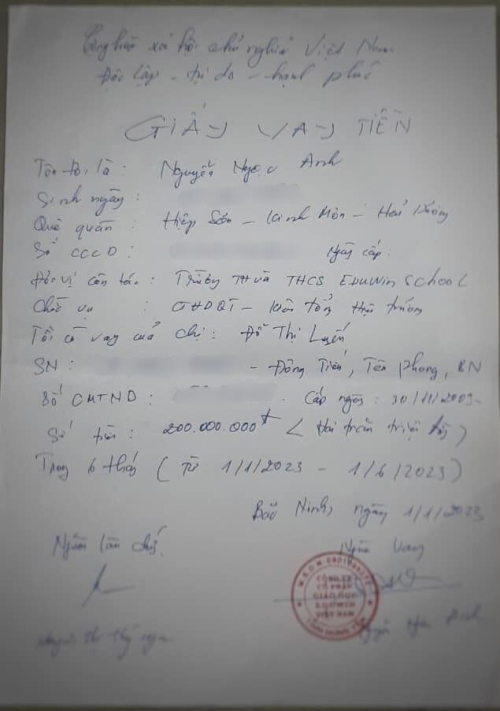 Cộng hòa xã hội chủ nghĩa Việt Nam
Độc lập - tự do - hạnh phúc
GIẤY VAY TIỀN
Tên tôi là : Nguyễn Ngọc Anh
Sinh ngày :
Quê quán : Hiệp Sơn - Kinh Môn - Hải Dương
Số CCCD : Ngày cấp:
Đơn vị công tác : Trường TH và THCS EDUWIN SCHOOL
Chức vụ : CTHĐQT - kiêm tổng Hiệu trưởng
Tôi có vay của chị : Đỗ Thị Luyến
SN : - Đông Tiến, Yên Phong, BN
Số CMTND : Cấp ngày : 30/11/2009
Số tiền : 200.000.000đ ( Hai trăm triệu đồng )
Trong 6 tháng ( Từ 1/1/2023 - 1/6/2023)
Bắc Ninh, ngày 1/1/2023
Người làm chứng Người vay
CÔNG TY
CỔ PHẦN
GIÁO DỤC
EDUWIN
VIỆT NAM